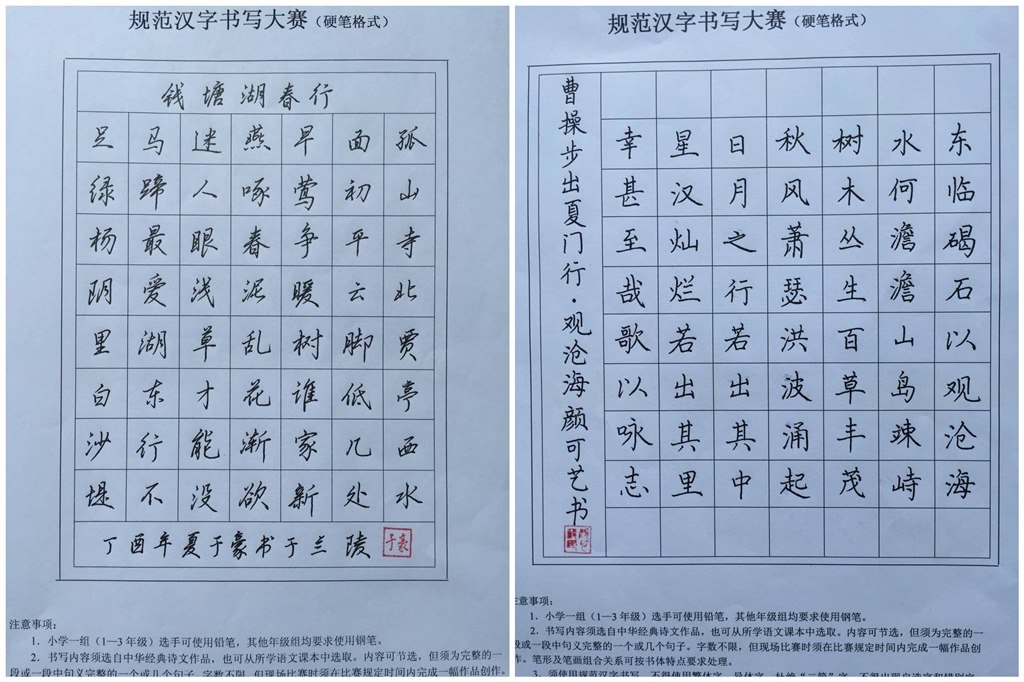 规范汉字书写大赛（硬笔格式）
钱塘湖春行
孤山寺北贾亭西水
面初平云脚低几处
早莺争暖树谁家新
燕啄春泥乱花渐欲
迷人眼浅草才能没
马蹄最爱湖东行不
足绿杨阴里白沙堤
丁酉年夏于豪书于兰陵
于豪
注意事项：
1．小学一组（1—3 年级）选手可使用铅笔，其他年级组均要求使用钢笔。
2．书写内容须选自中华经典诗文作品，也可从所学语文课本中选取。内容可节选，但须为完整的一
段或一段中句义完整的一个或几个句子。字数不限，但现场比赛时须在比赛规定时间内完成一幅作品创作。
规范汉字书写大赛（硬笔格式）
东临碣石以观沧海
水何澹澹山岛竦峙
树木丛生百草丰茂
秋风萧瑟洪波涌起
日月之行若出其中
星汉灿烂若出其里
幸甚至哉歌以咏志
曹操步出夏门行·观沧海颜可艺书
注意事项：
1．小学一组（1—3 年级）选手可使用铅笔，其他年级组均要求使用钢笔。
2．书写内容须选自中华经典诗文作品，也可从所学语文课本中选取。内容可节选，但须为完整的一
段或一段中句义完整的一个或几个句子。字数不限，但现场比赛时须在比赛规定时间内完成一幅作品创
作。笔形及笔画组合关系可按书体特点要求处理。
3．须使用规范汉字书写，不得使用繁体字、异体字，杜绝“二简”字，不得出现自造字和错别字